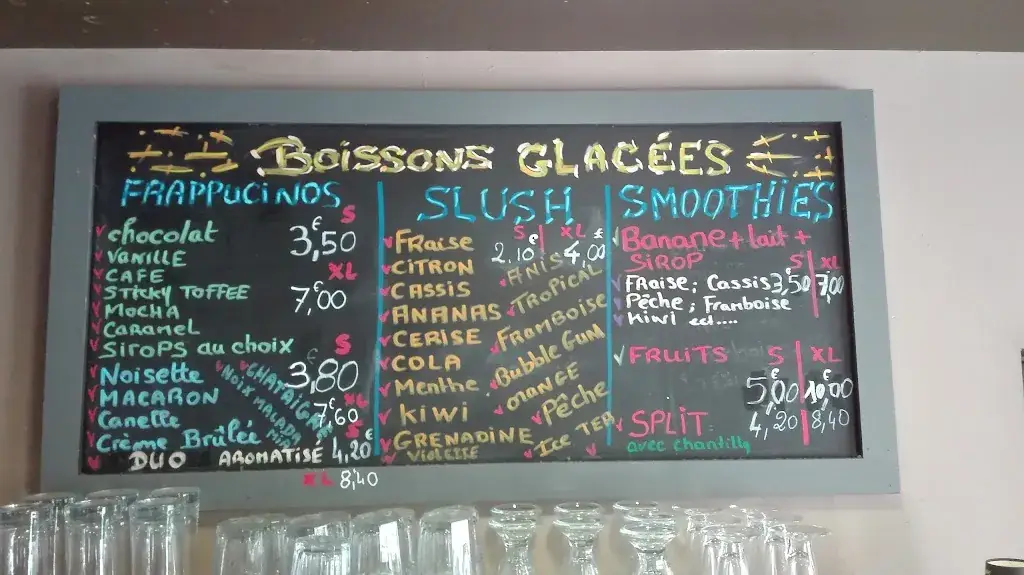 BOISSONS GLACÉES
FRAPPUCINOS
S
chocolat 3,50 €
VANILLE
CAFE XL
STICKY TOFFEE 7,00 €
MOCHA
CARAMEL
SIROPS au choix S
Noisette 3,80 €
CHATAIGNE
NOIX MACADAMIA
MACARON XL
Canelle 7,60 €
Crème Brûlée S
DUO AROMATISÉ 4,20 €
XL 8,40
SLUSH
S XL
FRaise 2.10 € 4,00 €
CITRON ANIS
CASSIS TROPICAL
ANANAS
CERISE FRAMBOISE
COLA Bubble Gum
Menthe ORANGE
KIWI Pêche
GRENADINE ICE TEA
VIOLETTE
SMOOTHIES
Banane + lait +
SIROP S XL
FRaise ; Cassis 3,50 7,00
Pêche ; Framboise
Kiwi ect....
FRUITS S XL
5,00 € 10,00 €
SPLIT : 4,20 8,40
avec chantilly